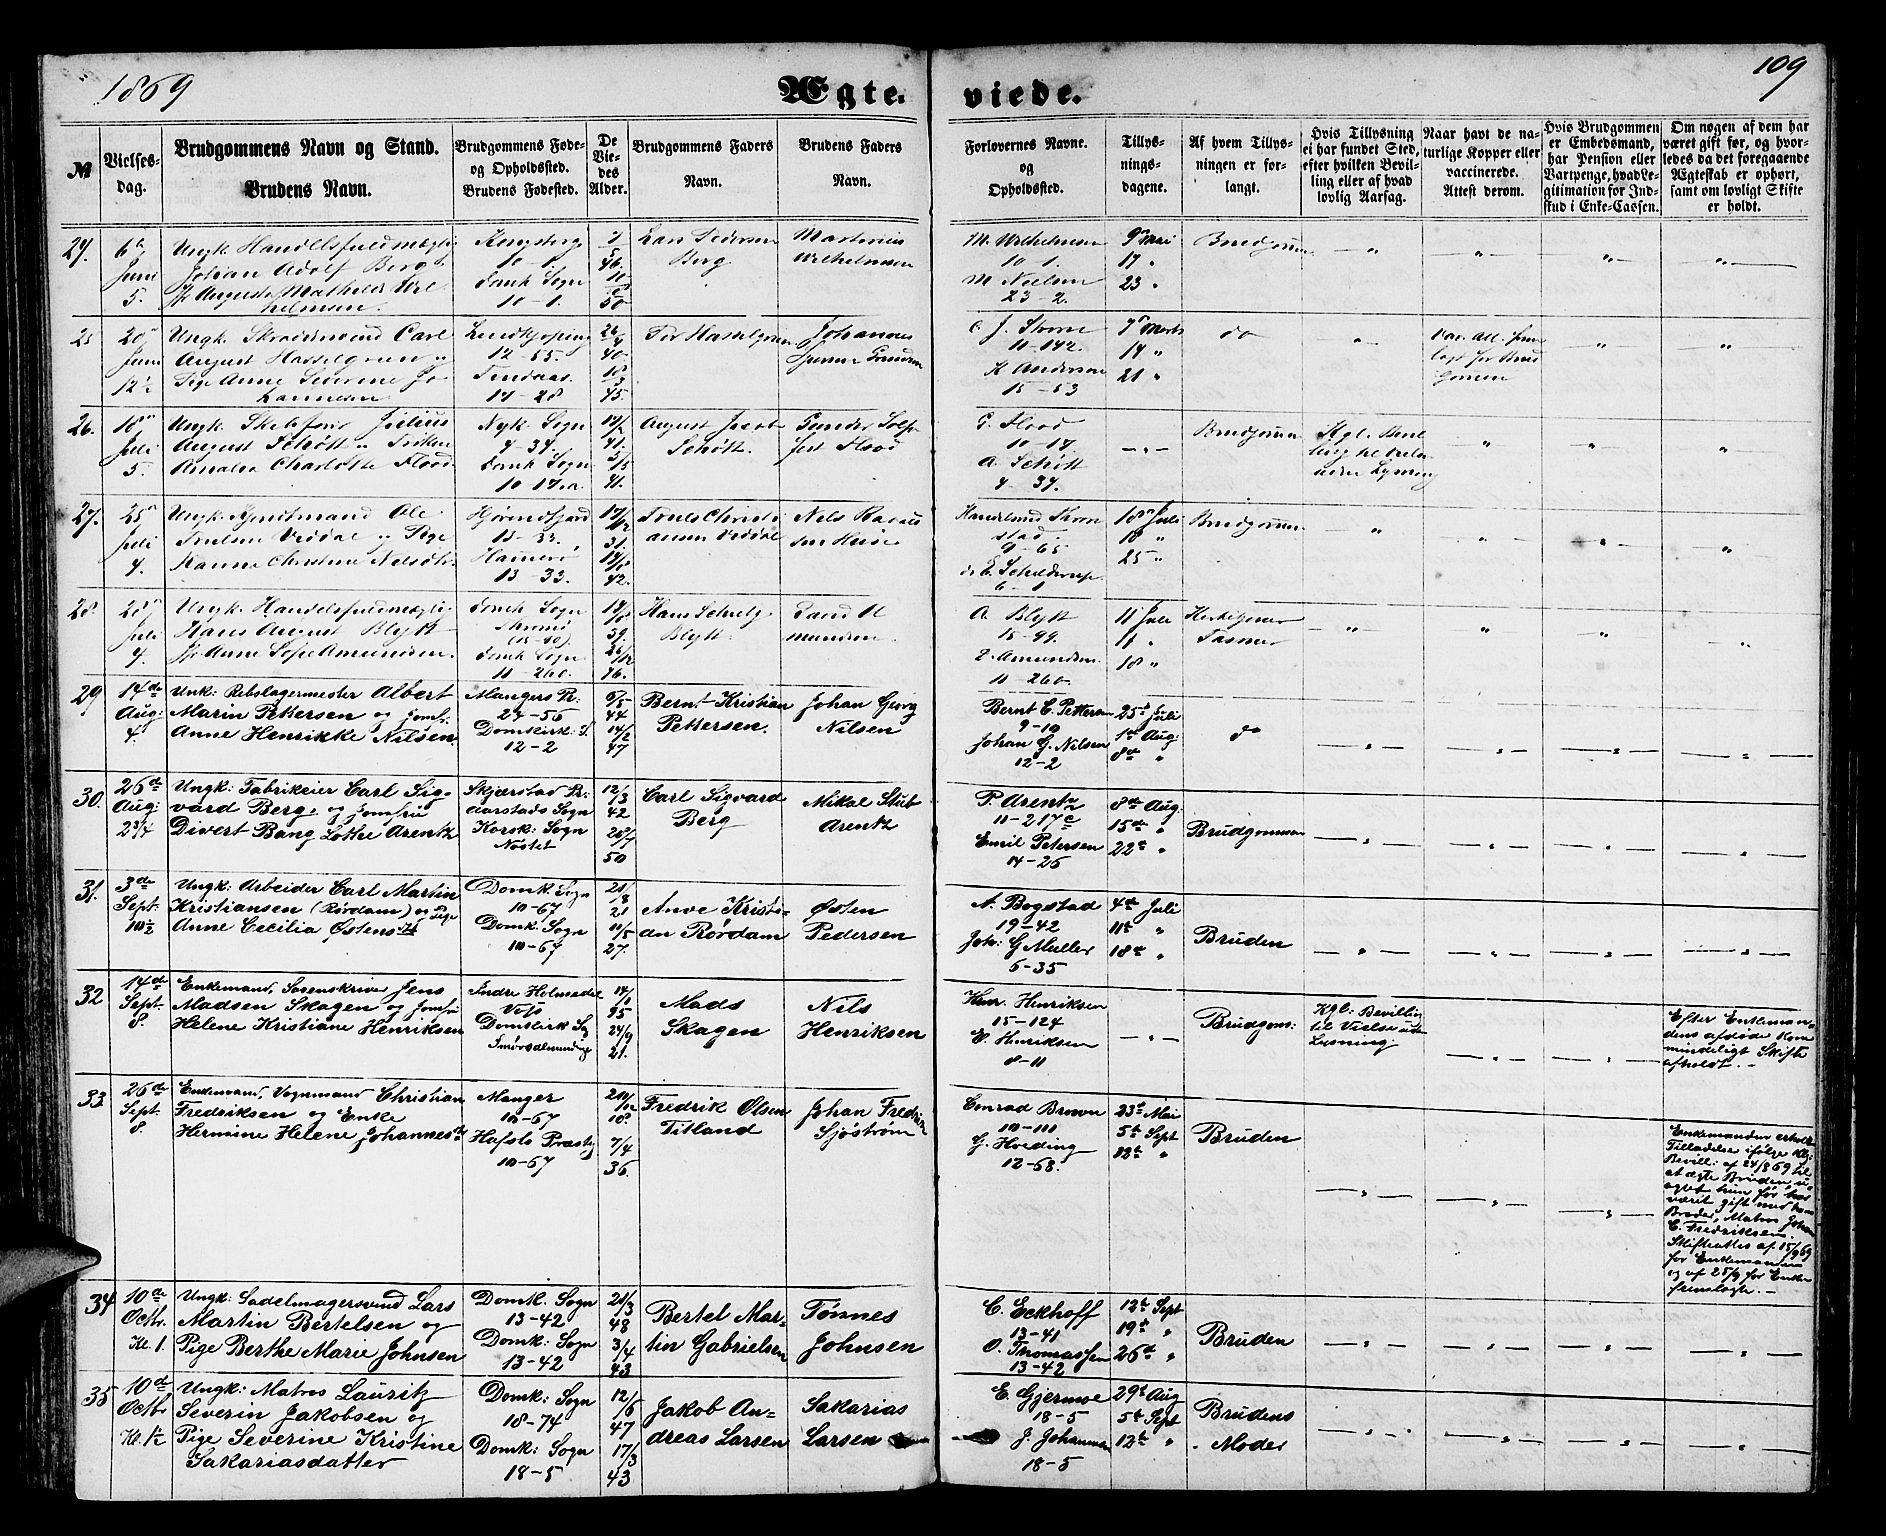 1869
Ægte-
viede.
109
№
Vielses-
dag.
Brudgommens Navn og Stand.
Brudens Navn.
Brudgommens Føde-
og Opholdsted.
Brudens Fødested.
De
Vie-
des
Alder.
Brudgommens Faders
Navn.
Brudens Faders
Navn.
Forlovernes Navne.
og
Opholdsted.
Tillys-
nings-
dagene.
Af hvem Tillys-
ningen er for-
langt.
Hvis Tillysning
ei har fundet Sted,
efter hvilken Bevil-
ling eller af hvad
lovlig Aarsag.
Naar havt de na-
turlige Kopper eller
vaccinerede.
Attest derom.
Hvis Brudgommen
er Embedsmand,
har Pension eller
Vartpenge, hvad Le-
gitimation for Ind-
skud i Enke-Cassen.
Om nogen af dem har
været gift før, og hvor-
ledes da det foregaaende
Ægteskab er ophørt,
samt om lovligt Skifte
er holdt.
Juni
5.
Johan Adolf Berg
10-1.
Domk Sogn
10-1.
Berg
Wilhelmsen
M. Wilhelmsen
10-1.
M Nielsen
23-2.
9 Mai
17 "
23 "
Brudgommen
20
Juni
12½
Ungk. Skrædersvend Carl
August Hasselgreen
Pige Anne Severine Jo
hannesen
12-55.
17-28
Per Hasselgreen
Johannes
11-142.
K Andersen
15-53
7 Marts
14 "
21 "
do
26.
18
Juli
5.
Ungk. Julius
August Schøtt
Amalia Charlotte Flood
Nyk. Sogn
4-34.
Domk Sogn
10-17.a.
August Jacob
Schøtt.
Flood
C. Flood
10-17
A. Schøtt
4-34.
Brudgommen
27.
25
Juli
4.
Ole
Hanna Christine Nilsdtr.
13-33.
Hammerø
13-33.
Nils
18 Juli
18 "
25 "
Brudgommen
28.
28
Juli
4.
Ungk. Handelsfuldmægtig
Hans August Blytt
Jfr Anne Sofie Amundsen.
Domk Sogn
Domk Sogn
11-260.
Blytt.
A. Blytt
15-99.
Amundsen
11-260.
11 Juli
11 "
18 "
29
14de
Aug:
4.
Unk: Rebslagermester Albert
Marin Pettersen og Jomfr.
Anne Henrikke Nilsen.
Mangers Pr:
27-56
Domkirk: S.
12-2
6/5
44
14/2
47
Bernt Kristian
Pettersen.
Johan Georg
Nilsen
Bernt C. Pettersen
9-10
Johan G. Nilsen
12-2
25de Juli
1st Aug:
8de "
do
30.
26de
Aug:
2¾
Ungk: Fabrikeier Carl Sig-
vard Berg, og Jomfru
Divert Bang Lothe Arentz
Skjærstad Pr:
aarstads Sogn
Korsk: Sogn
Nøstet
12/3
42
28/7
50
Carl Sigvard
Berg
Mikal Stub
Arentz
P. Arentz
11-217c
Emil Petersen
14-26
8de Aug:
15de "
22de "
Brudgommen
31.
3de
Sept:
10½
Ungk: Arbeider Carl Martin
Kristiansen (Rørdam) og Pige
Anne Cecilia Østensdtr
Domk: Sogn
10-67
Domk: Sogn
10-67
21/8
21
11/5
27.
Arve Kristi-
an Rørdam
Østen
Pedersen
A. Bogstad
19-42
Joh: G Muller
6-35
4de Juli
11te "
18de "
Bruden
32
14de
Sept.
8.
Enkemand, Sorenskriver Jens
Madsen Skagen og Jomfru
Helene Kristiane Henriksen
Indre Holmedal
Vofs
Domkirk Sg
Smørsalmending
14/1
95
24/9
21.
Mads
Skagen
Nils
Henriksen
Henr. Henriksen
15-124
E. Henriksen
8-11
Brudgom:
Kgl: Bevilling
til Vielse uden
Lysning.
Efter Enkeman-
dens afdøde Kone
mindeligt Skifte
afholdt.
33
26de
Sept.
8.
Enkemand, Vognmand Christian
Fredriksen og Enke
Hermine Helene Johannesdtr
Manger
10-67
Hafslo Præstg
10-67
18.
7/4
36.
Fredrik Olsen
Titland
Johan Fredrik
Sjøstrøm
Conrad Brown
10-111
G. Hveding
12-68.
23de Mai
5te Sept
12te "
Bruden
Enkemanden erholdt
Tilladelse ifølge Kgl:
Bevill: af 24/8 69 til
at ægte Bruden u-
agtet hun før har
været gift med hans
Broder, Matros Johan
C. Fredriksen.
Skifteattes af 15/9 69
for Enkemanden
og af 25/9 for Enken
fremlagte.
34
10de
Octbr.
Kl. 1.
Ungk: Sadelmagersvend Lars
Martin Bertelsen og
Pige Berthe Marie Johnsen
Domk: Sogn
13-42
Domk: Sogn
13-42
21/3
48
3/4
43
Bertel Mar-
tin Gabrielsen
Tønnes
Johnsen
C. Eckhoff
13-41
O. Thomassen
13-42
12te Sept
19de "
26de "
Bruden
35
10de
Octbr
Kl. ½
Ungk: Matros Lauritz
Severin Jakobsen og
Pige Severine Kristine
Sakariasdatter
Domk: Sogn
18-74
Domk: Sogn
18-5
12/6
47
17/3
43
Jakob An-
dreas Larsen
Sakarias
Larsen
E. Gjermoe
18-5
J. Johannesen
18-5
29de Aug
5te Sept
12te "
Brudens
Moder